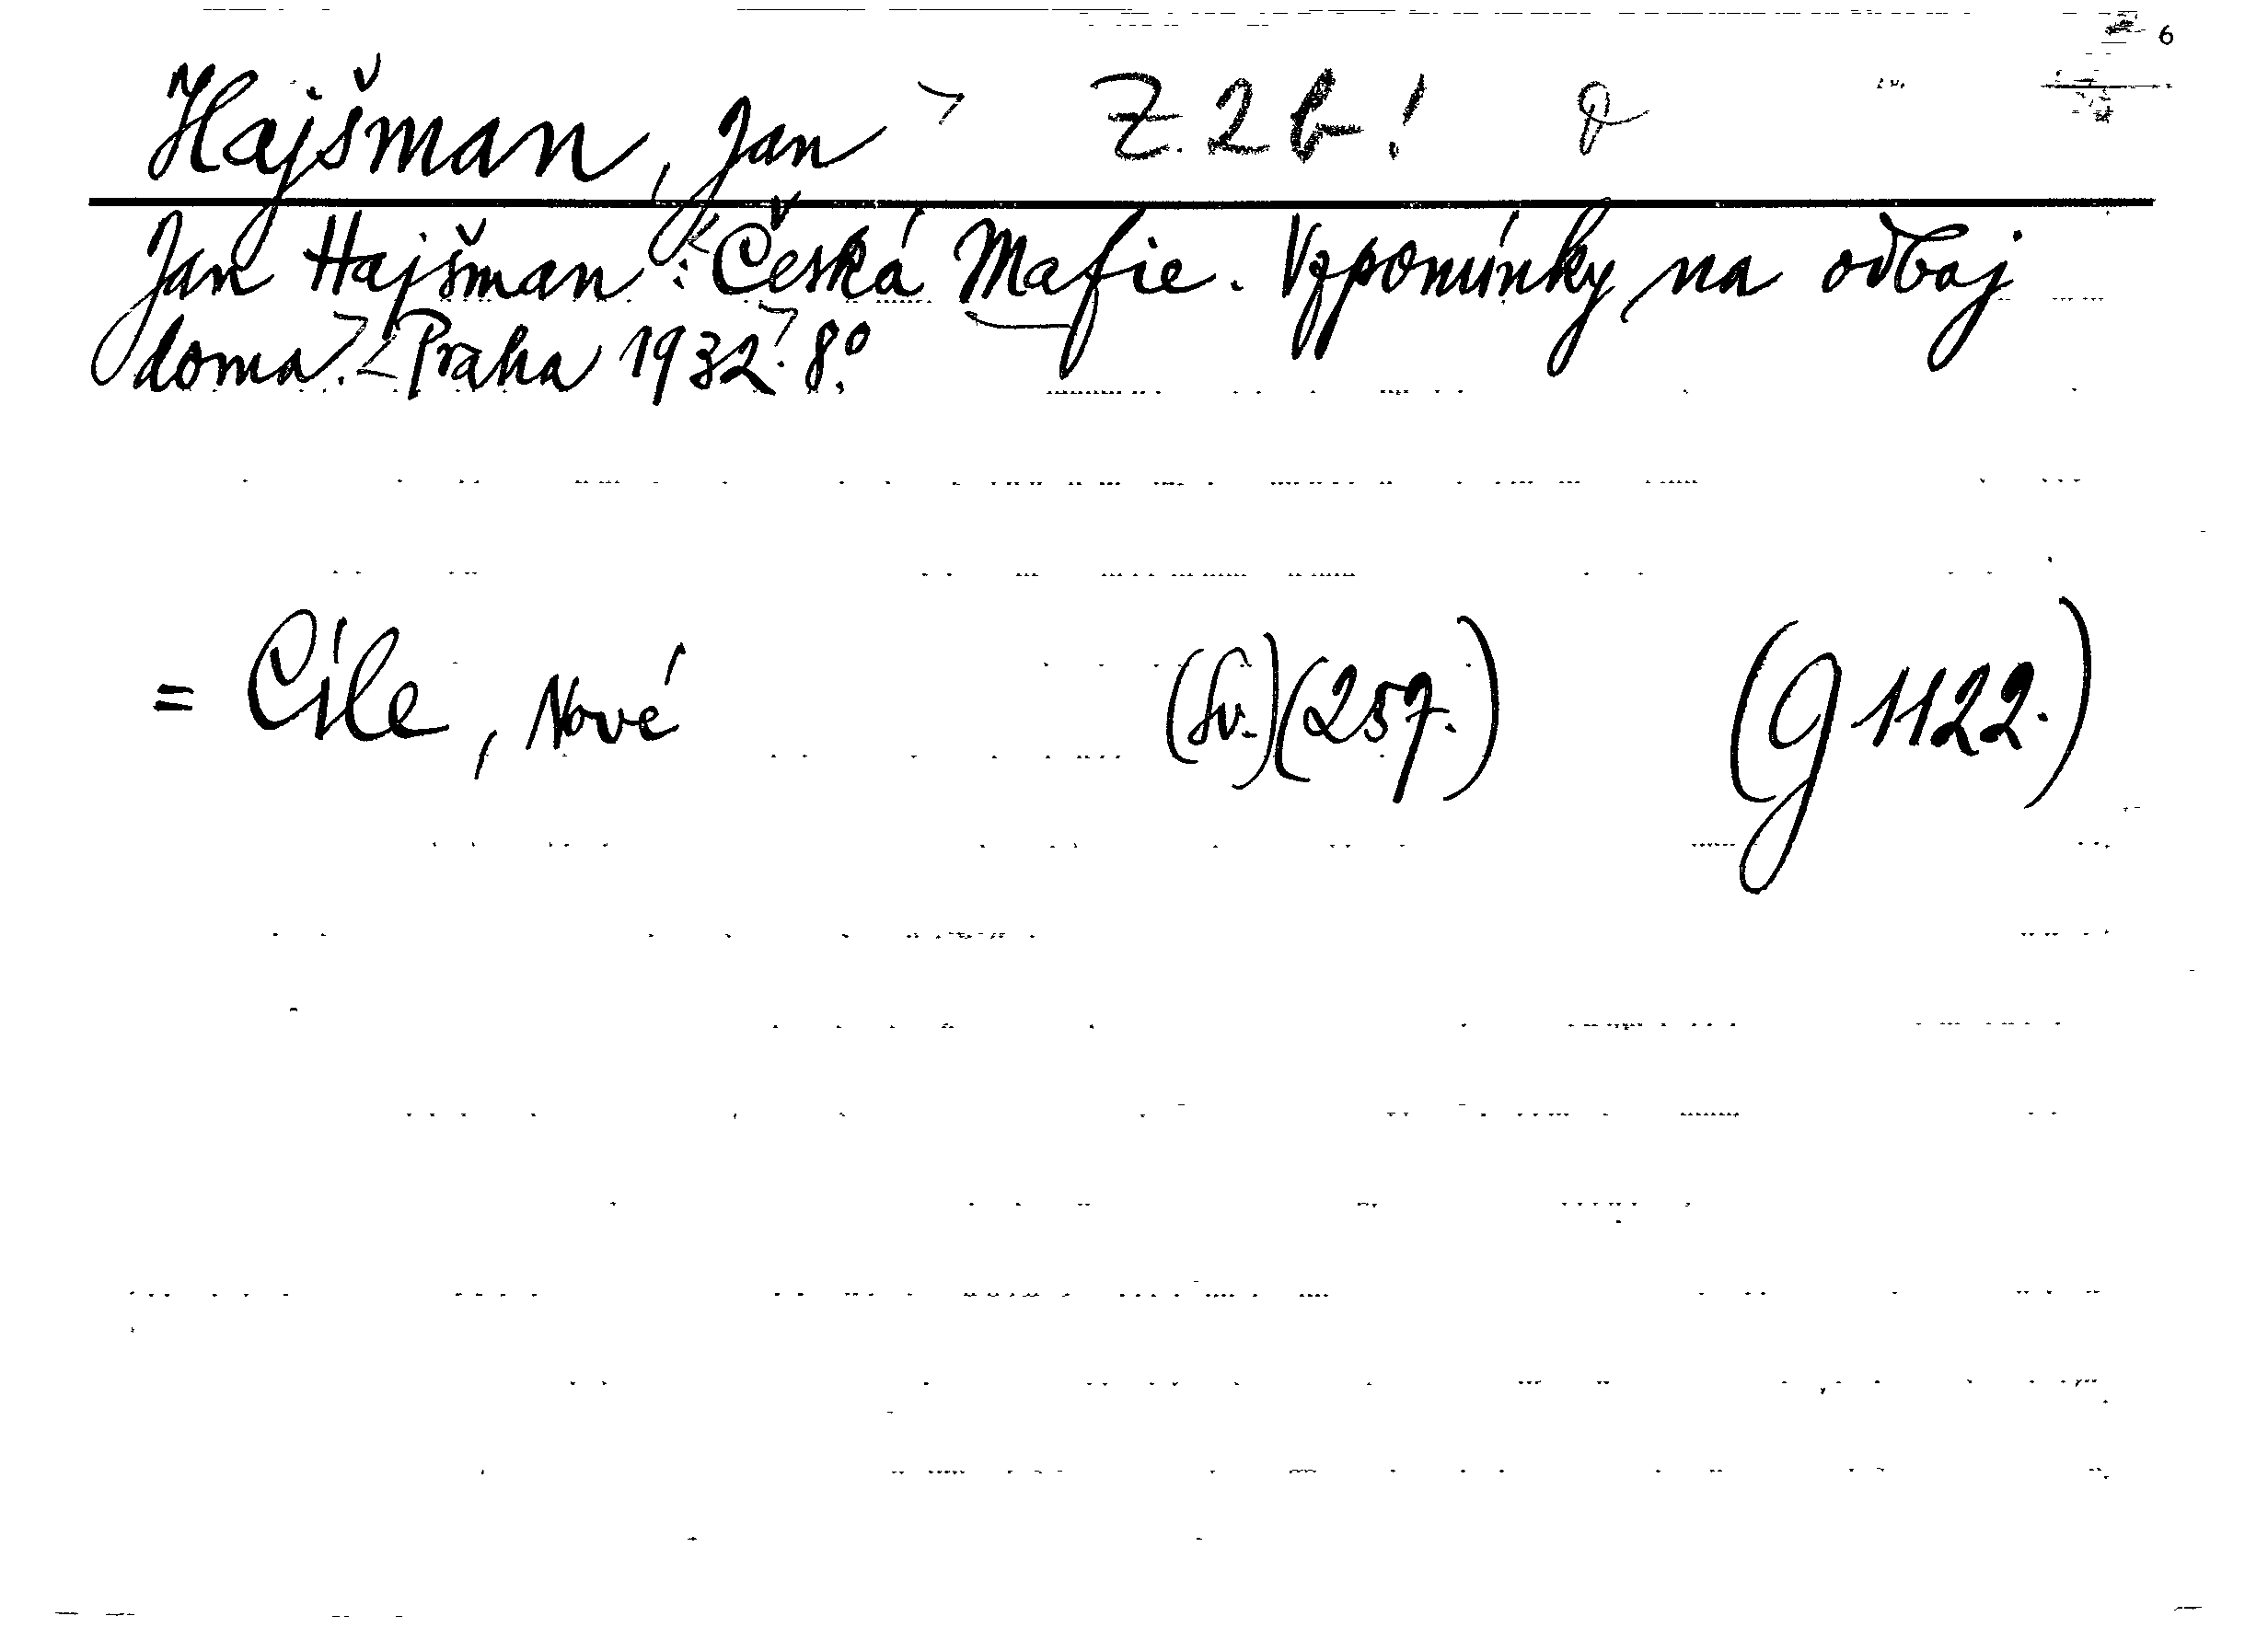 6
Hajšman, Jan Z. 2 b!
Jan Hajšman: Česká Mafie. Vzpomínky na odboj
doma. Praha 1932. 8°.
= Cíle, Nové (Sv.) (257.) (G 1122.)